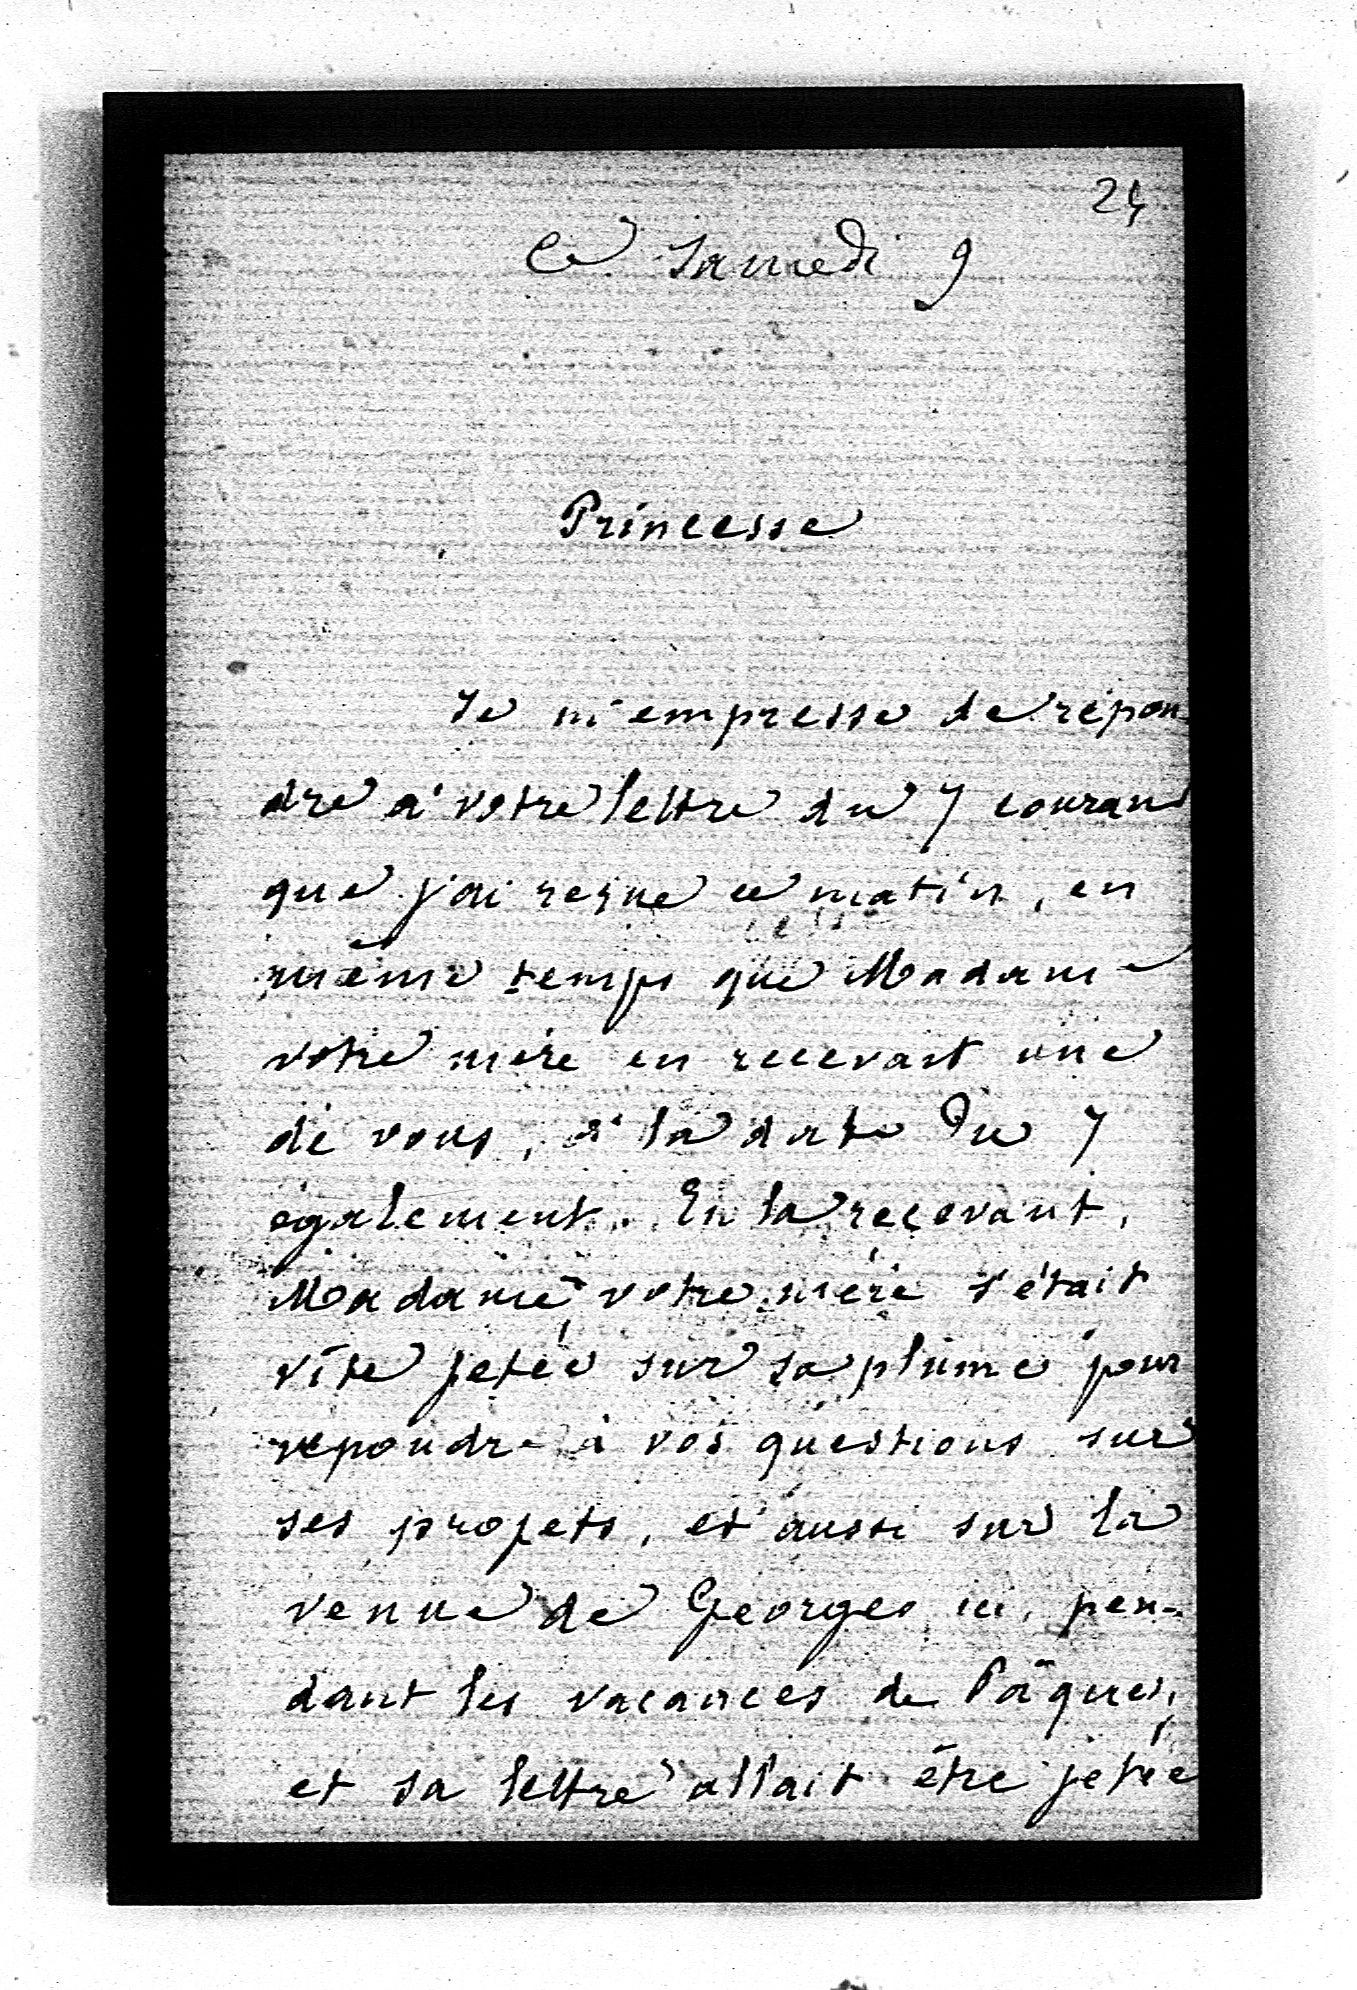 24
Ce Samedi 9
Princesse
Je m'empresse de répon
dre à votre lettre du 7 courant
que j'ai reçue ce matin, en
même temps que Madame
votre mère en recevait une
de vous, à la date du 7
également. En la recevant,
Madame votre mère s'était
vite jetée sur sa plume pour
repondre à vos questions sur
ses projets, et aussi sur la
venue de Georges ici, pen-
dant les vacances de Pâques,
et sa lettre allait être jetée